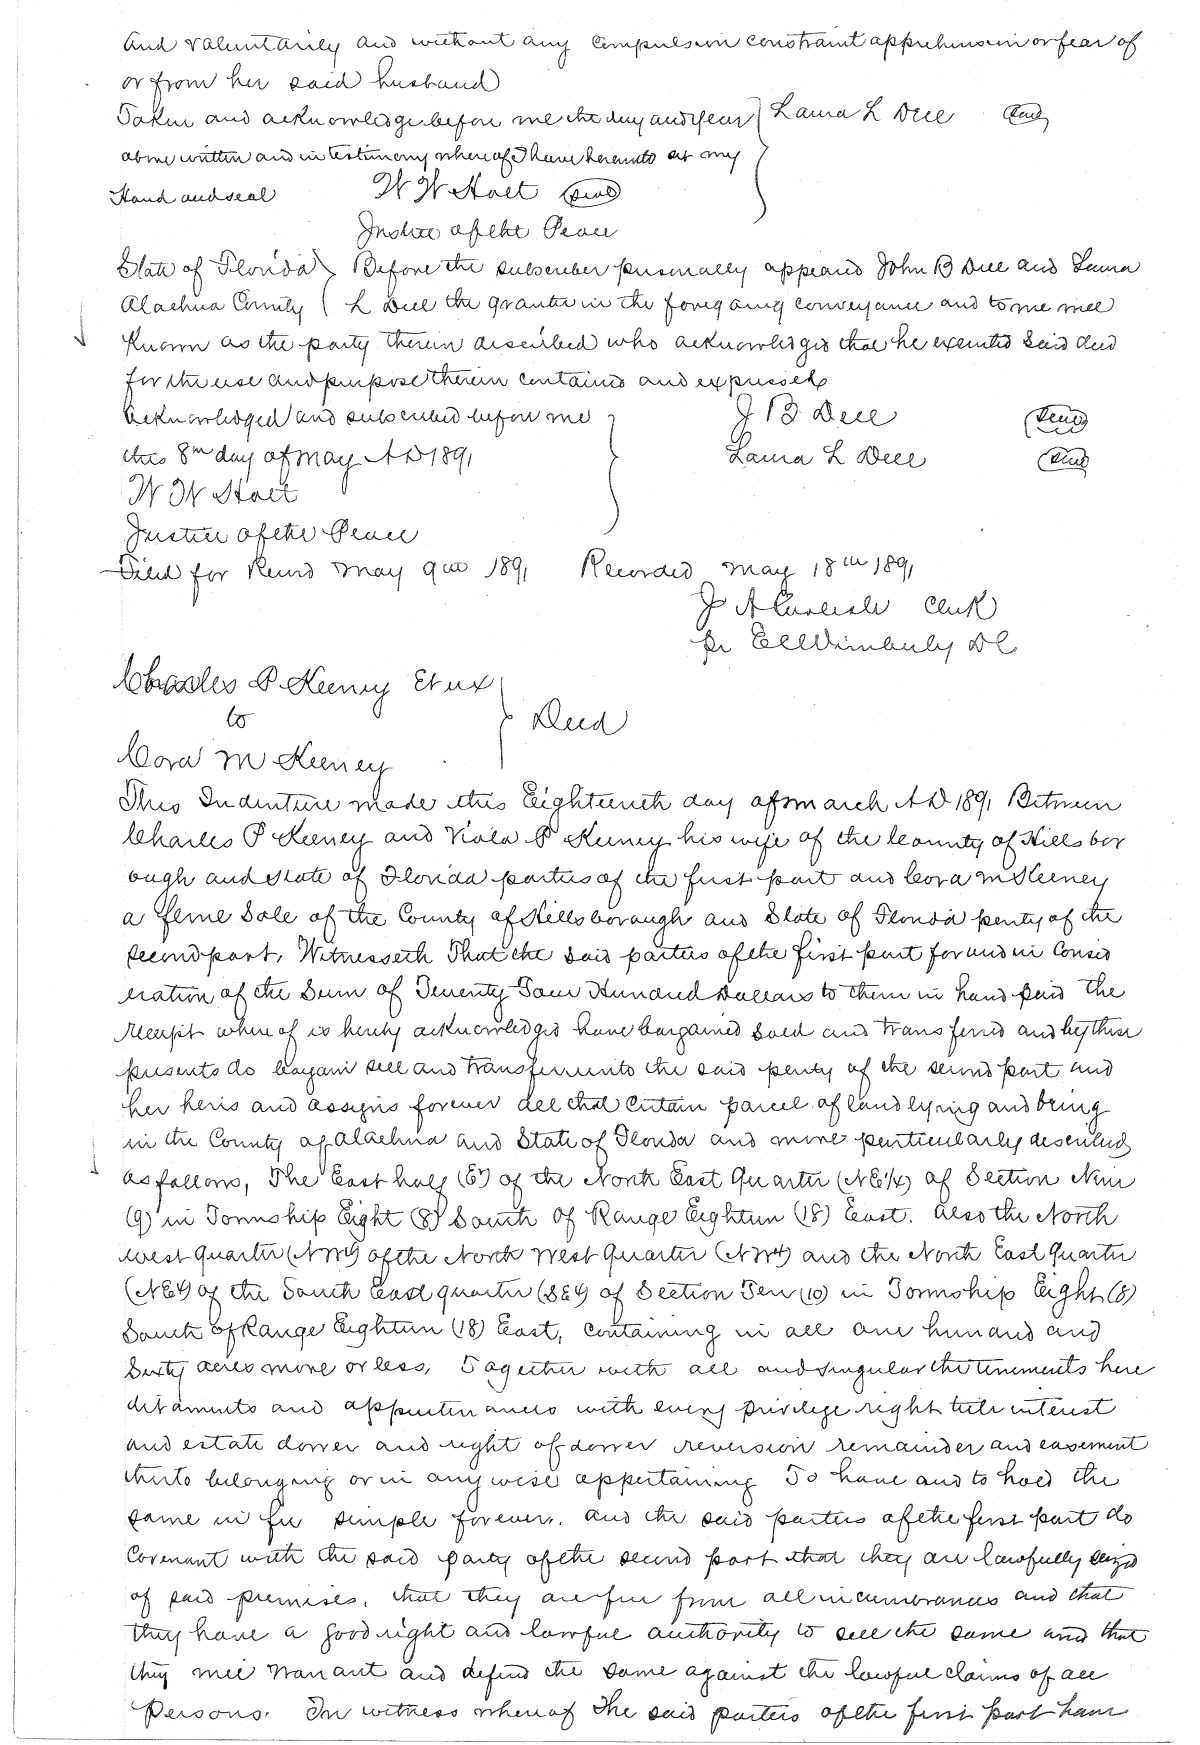 and voluntarily and without any compulsion constraint apprehension or fear of
or from her said husband
Taken and acknowledge before me the day and year } Laura L Dell Seal
above written and in testimony whereof I have hereunto set my
Hand and seal W W Holt Seal
Justice of the Peace
State of Florida } Before the subscriber personally appeared John B Dell and Laura
Alachua County { L Dell the grantor in the foregoing conveyance and to me well
Known as the party therein described who acknowledged that he executed said deed
for the use and purpose therein contained and expressed
Acknowledged and subscribed before me } J B Dell Seal
this 8th day of May A D 1891 Laura L Dell Seal
W W Holt
Justice of the Peace
Filed for Record May 9th 1891 Recorded May 18th 1891
J A Carlisle Clerk
pr E C Wimberly D C
Charles P Keeney Et ux
to } Deed
Cora M Keeney
This Indenture made this Eighteenth day of March A D 1891 Between
Charles P Keeney and Viola P Keeney his wife of the County of Hillsbor
ough and State of Florida parties of the first part and Cora M Keeney
a feme Sole of the County of Hillsborough and State of Florida party of the
second part, Witnesseth That the said parties of the first part for and in Consid
eration of the Sum of Twenty Four Hundred Dollars to them in hand paid the
receipt where of is hereby acknowledged have bargained sold and transferred and by these
presents do bargain sell and transfer unto the said party of the second part and
her heirs and assigns forever all that certain parcel of land lying and being
in the County of Alachua and State of Florida and more particularly described
as follows, The East half (E½) of the North East Quarter (NE¼) of Section Nine
(9) in Township Eight (8) South of Range Eighteen (18) East. Also the North
west quarter (NW¼) of the North West Quarter (NW¼) and the North East Quarter
(NE¼) of the South East quarter (SE¼) of Section Ten (10) in Township Eight (8)
South of Range Eighteen (18) East, containing in all one hundred and
Sixty acres more or less, Together with all and singular the tenements here
ditaments and appurtenances with every privilege right title interest
and estate dower and right of dower reversion remainder and easement
thereto belonging or in any wise appertaining To have and to hold the
same in fee simple forever. and the said parties of the first part do
Covenant with the said party of the second part that they are lawfully seized
of said premises, that they are free from all incumbrances and that
they have a good right and lawful authority to sell the same and that
they will warrant and defend the same against the lawful claims of all
Persons. In witness whereof The said parties of the first part have